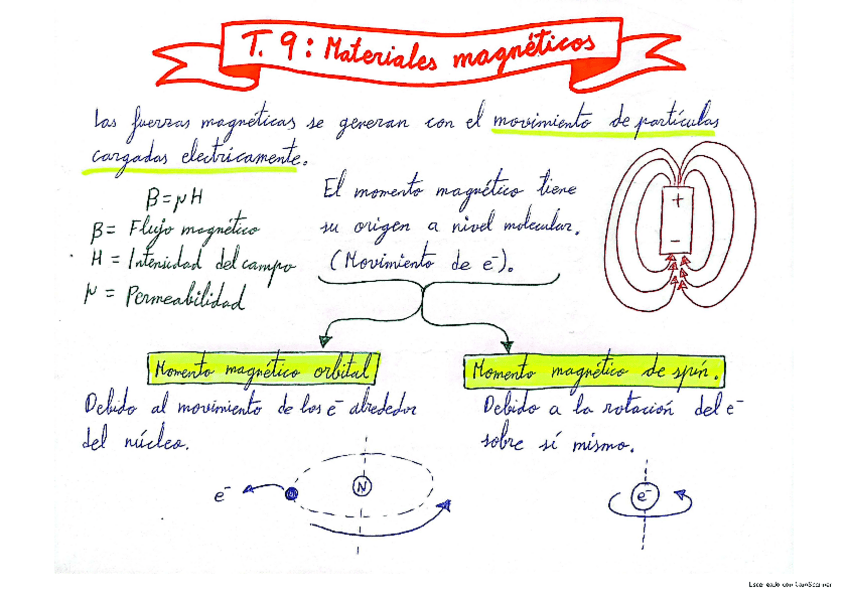 T. 9: Materiales magnéticos
Las fuerzas magnéticas se generan con el movimiento de partículas
cargadas electricamente.
β=μH
β= Flujo magnético
H = Intensidad del campo
μ = Permeabilidad
El momento magnético tiene
su origen a nivel molecular.
(Movimiento de e⁻).
+
−
Momento magnético orbital
Debido al movimiento de los e⁻ alrededor
del núcleo.
e⁻
N
Momento magnético de spin.
Debido a la rotación del e⁻
sobre sí mismo.
e⁻
Escaneado con CamScanner